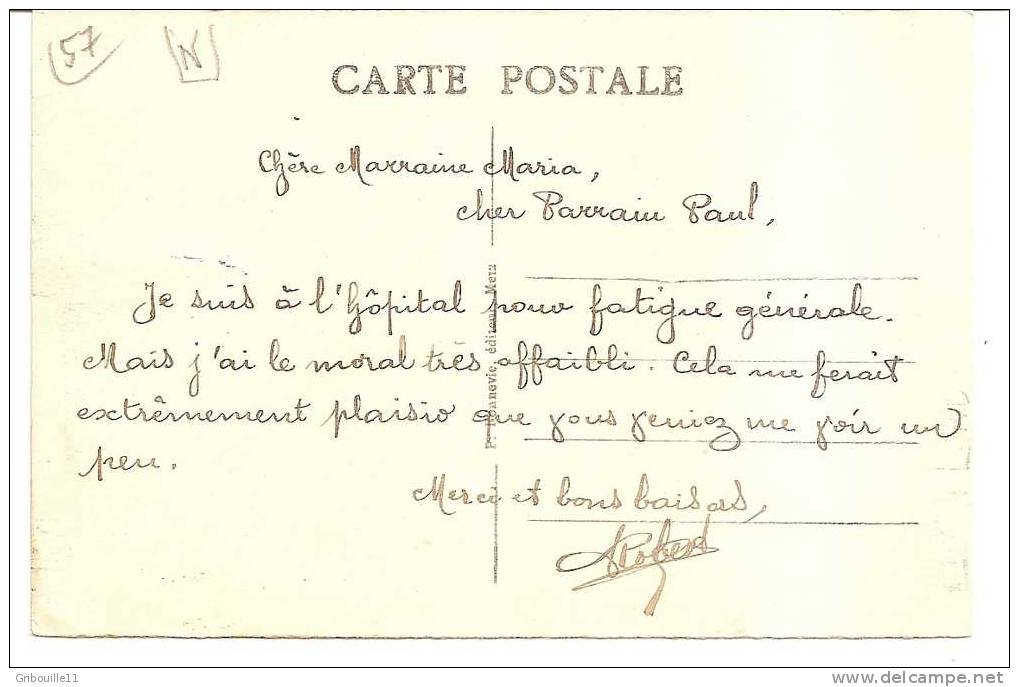 57
N
CARTE POSTALE
Chère Marraine Maria,
cher Parrain Paul,
Je suis à l'hôpital pour fatigue générale.
Mais j'ai le moral très affaibli. Cela me ferait
extrêmement plaisir que vous veniez me voir un
peu.
Merci et bons baisers,
Robert
éditeur, Metz
Gribouille11
www.delcampe.net